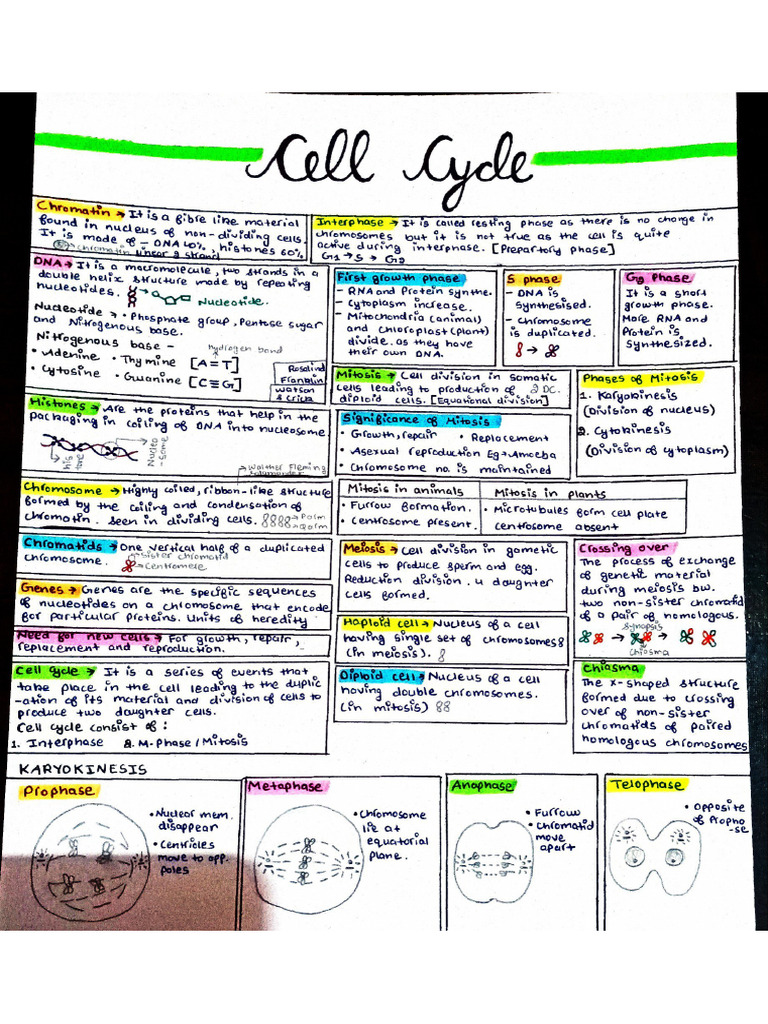 Cell Cycle
Chromatin → It is a fibre like material
found in nucleus of non-dividing cells.
It is made of - DNA 40%, histones 60%
Chromatin linear 2 strand
Interphase → It is called resting phase as there is no change in
chromosomes but it is not true as the cell is quite
active during interphase. [Prepartory phase]
G1 → S → G2
DNA → It is a macromolecule, two strands in a
double helix structure made by repeating
nucleotides.
Nucleotide.
Nucleotide → • Phosphate group, Pentose sugar
and Nitrogenous base.
Nitrogenous base -
hydrogen bond
• Adenine • Thymine [A=T]
• Cytosine • Guanine [C≡G]
Rosalind
Franklin
Watson
& Crick
First growth phase
- RNA and Protein synthe.
- Cytoplasm increase.
- Mitochondria (animal)
and chloroplast (plant)
divide. as they have
their own DNA.
S phase
- DNA is
synthesised.
- Chromosome
is duplicated.
G2 phase
It is a short
growth phase.
More RNA and
Protein is
synthesized.
Histones → Are the proteins that help in the
packaging in coiling of DNA into nucleosome
his
tone
Nucleo
-some
Mitosis → Cell division in somatic
cells leading to production of 2 DC.
diploid cells. [Equational division]
Phases of Mitosis
1. Karyokinesis
(Division of nucleus)
2. Cytokinesis
(Division of cytoplasm)
Significance of Mitosis
• Growth, repair • Replacement
• Asexual reproduction Eg → Amoeba
• Chromosome no. is maintained
Walther Fleming
Salamander
Chromosome → Highly coiled, ribbon-like structure
formed by the coiling and condensation of
chromatin. seen in dividing cells.
Parm
Qarm
Mitosis in animals
• Furrow formation.
• Centrosome present.
Mitosis in plants
• Microtubules form cell plate
centrosome absent
Chromatids → One vertical half of a duplicated
chromosome.
Sister chromatid
Centromere
Genes → Genes are the specific sequences
of nucleotides on a chromosome that encode
for particular proteins. Units of heredity
Need for new cells → For growth, repair,
replacement and reproduction.
Meiosis → Cell division in gametic
cells to produce sperm and egg.
Reduction division. 4 daughter
cells formed.
Crossing over
The process of exchange
of genetic material
during meiosis bw.
two non-sister chromatid
of a pair of homologous.
synopsis
chiasma
Haploid cell → Nucleus of a cell
having single set of chromosomes
(in meiosis).
Cell cycle → It is a series of events that
take place in the cell leading to the duplic
-ation of its material and division of cells to
produce two daughter cells.
Cell cycle consist of :
1. Interphase 2. M-Phase / Mitosis
Diploid cell → Nucleus of a cell
having double chromosomes.
(in mitosis)
Chiasma
The x-shaped structure
formed due to crossing
over of non-sister
chromatids of paired
homologous chromosomes
KARYOKINESIS
Prophase
• Nuclear mem.
disappear
• Centrioles
move to opp.
poles
Metaphase
• Chromosome
lie at
equatorial
plane.
Anaphase
• Furrow
• Chromatid
move
apart
Telophase
• Opposite
of Propha
-se